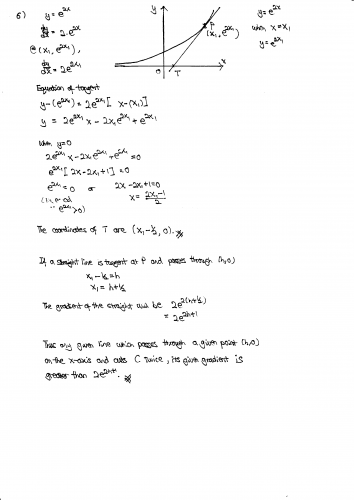 6) y = e^{2x}
dy/dx = 2·e^{2x}
@ (x₁, e^{2x₁}),
dy/dx = 2e^{2x₁}
y
P
(x₁, e^{2x₁})
O
T
x
y = e^{2x}
when x = x₁
y = e^{2x₁}
Equation of tangent
y-(e^{2x₁}) = 2e^{2x₁}[x-(x₁)]
y = 2e^{2x₁}x - 2x₁e^{2x₁} + e^{2x₁}
When y=0
2e^{2x₁}x - 2x₁e^{2x₁} + e^{2x₁} = 0
e^{2x₁}[2x - 2x₁ + 1] = 0
e^{2x₁} = 0 or 2x - 2x₁ + 1 = 0
∵ e^{2x₁} > 0) x = (2x₁-1)/2
The coordinates of T are (x₁-½, 0).
If a straight line is tangent at P and passes through (h,0)
x₁-½ = h
x₁ = h+½
The gradient of the straight will be 2e^{2(h+½)}
= 2e^{2h+1}
Thus any given line which passes through a given point (h,0)
on the x-axis and cuts C twice, its given gradient is
greater than 2e^{2h+1}.